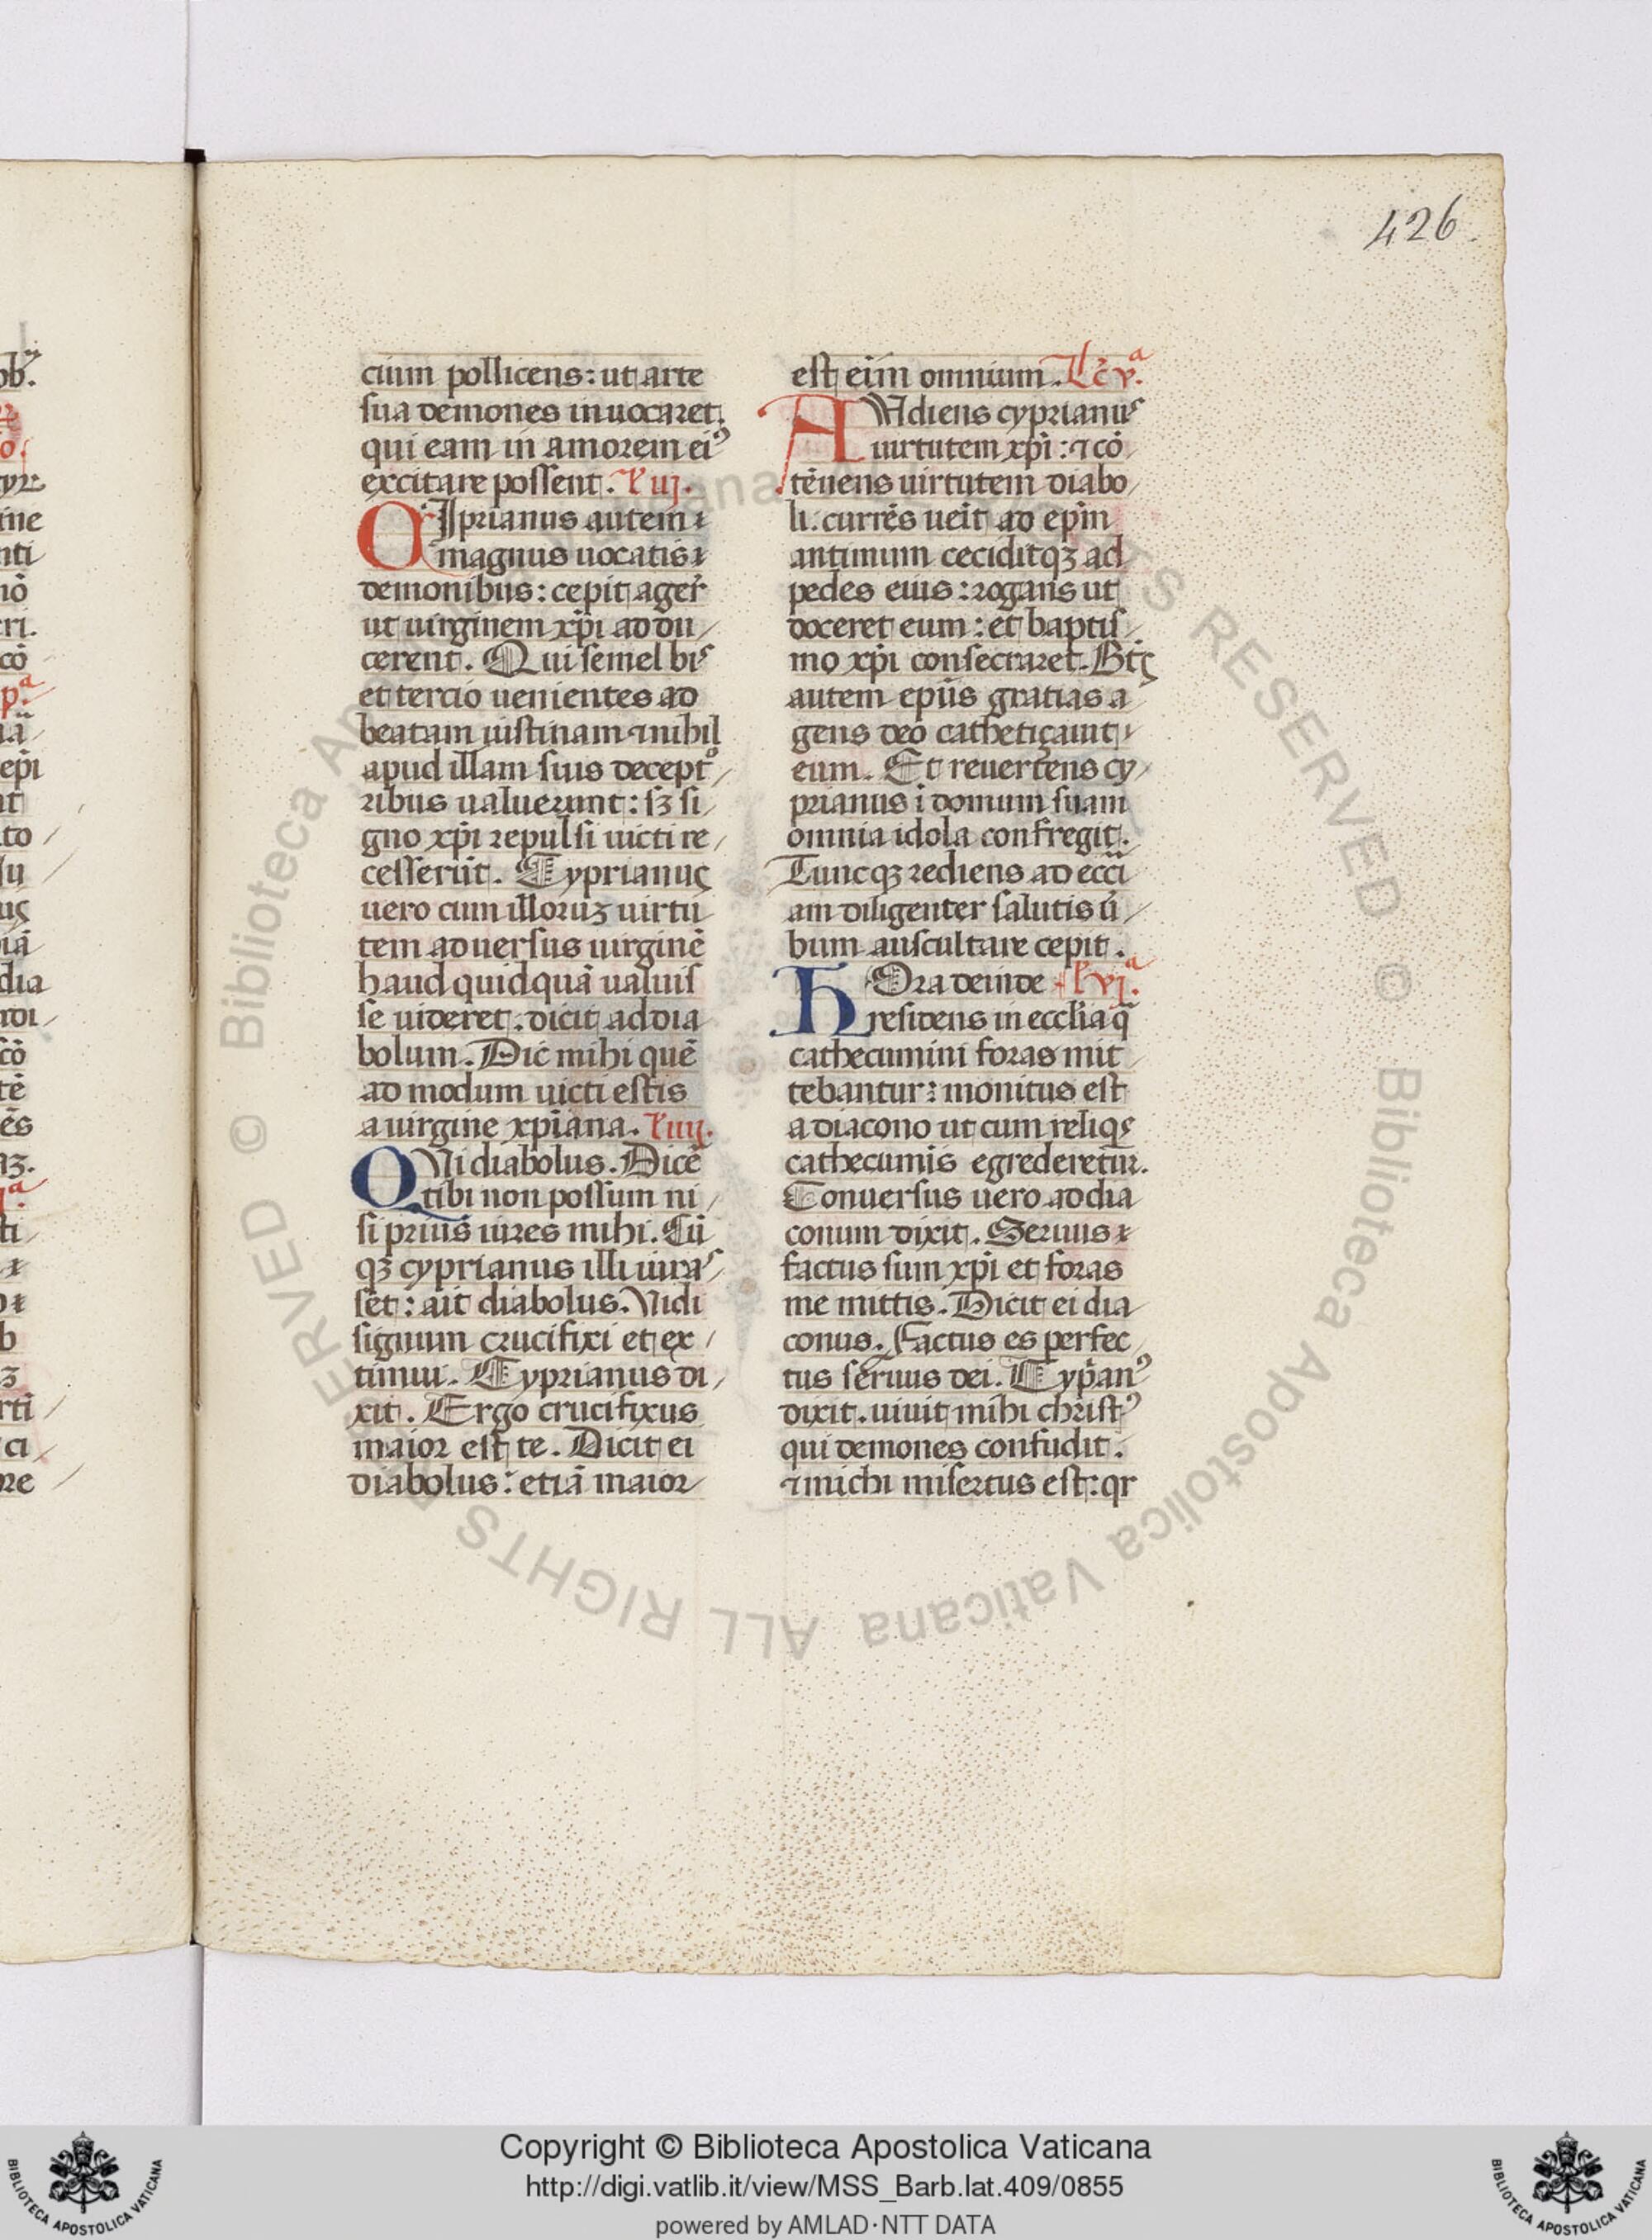 426
cium pollicens: ut arte
sua demones inuocaret
qui eam in amorem ei⁹
excitare possent. l' iij.
CIprianus autem
magnus uocatis
demonibus: cepit ager̄
ut uirginem xp̄i addu
cerent. Qui semel bis
et tercio uenientes ad
beatam iustinam ⁊ nihil
apud illam suis decept°
ribus ualuerunt: sꝫ si
gno xp̄i repulsi uicti re
cesserūt. Cyprianus
uero cum illoruꝫ uirtu
tem aduersus uirginē
haud quidquā ualuis
se uideret. dicit ad dia
bolum. Dic mihi quē
ad modum uicti estis
a uirgine xp̄iana. l' iiij.
CVi diabolus. Dicē
tibi non possum ni
si prius iures mihi. Cū
qꝫ cyprianus illi iuras
set: ait diabolus. Vidi
signum crucifixi et ex
timui. Cyprianus di
xit. Ergo crucifixus
maior est te. Dicit ei
diabolus: etiā maior
est eīm omnium. Lc̄ v.ª
AVdiens cyprianus
uirtutem xp̄i: ⁊ cō
tēnens uirtutem diabo
li. currēs ueīt ad ep̄m
antimum ceciditqꝫ ad
pedes eius: rogans ut
doceret eum: et baptis
mo xp̄i consecraret. Btꝰ
autem ep̄us gratias a
gens deo catheticauit
eum. Et reuertens cy
prianus ī domum suam
omnia idola confregit.
Tuncqꝫ rediens ad ecc̄i
am diligenter salutis ū
bum auscultare cepit.
HOra deinde l' vj.ª
residens in eccl̄ia q̄
cathecumini foras mit
tebantur: monitus est
a diacono ut cum reliqs
cathecumīs egrederetur.
Conuersus uero ad dia
conum dixit. Seruus
factus sum xp̄i et foras
me mittis. Dicit ei dia
conus. Factus es perfec
tus seruus dei. Cyp̄an⁹
dixit. uiuit mihi christ⁹
qui demones confudit.
⁊ michi misertus est: qr
Copyright © Biblioteca Apostolica Vaticana
http://digi.vatlib.it/view/MSS_Barb.lat.409/0855
powered by AMLAD·NTT DATA
BIBLIOTECA APOSTOLICA VATICANA
BIBLIOTECA APOSTOLICA VATICANA